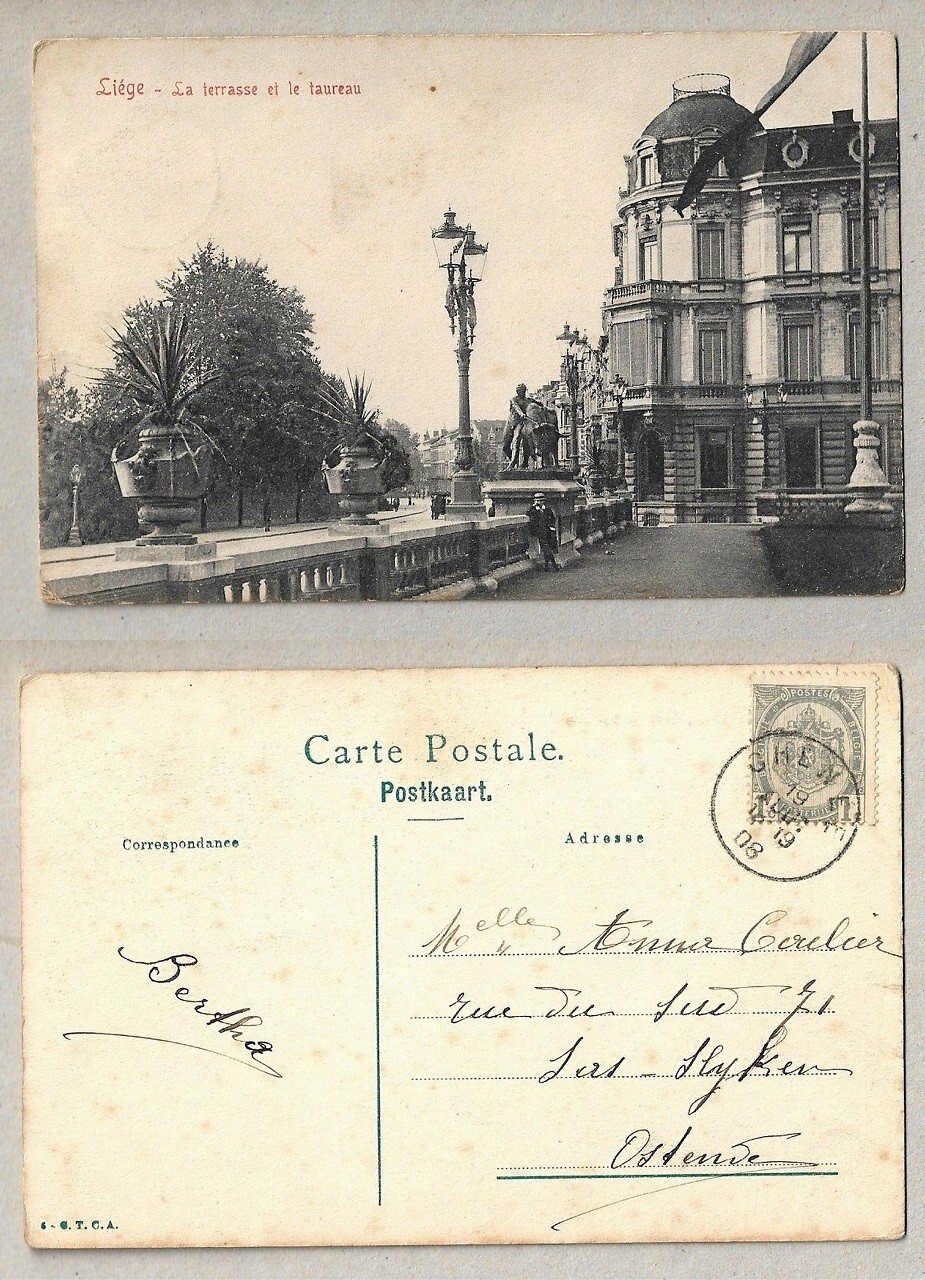 Liége - La terrasse et le taureau
POSTES
BELGIQUE
Carte Postale.
Postkaart.
Correspondance
Adresse
19
19
08
Melle Anna Coulier
rue du Sud 71
Sas - Slyken
Ostende
Bertha
G. T. C. A.